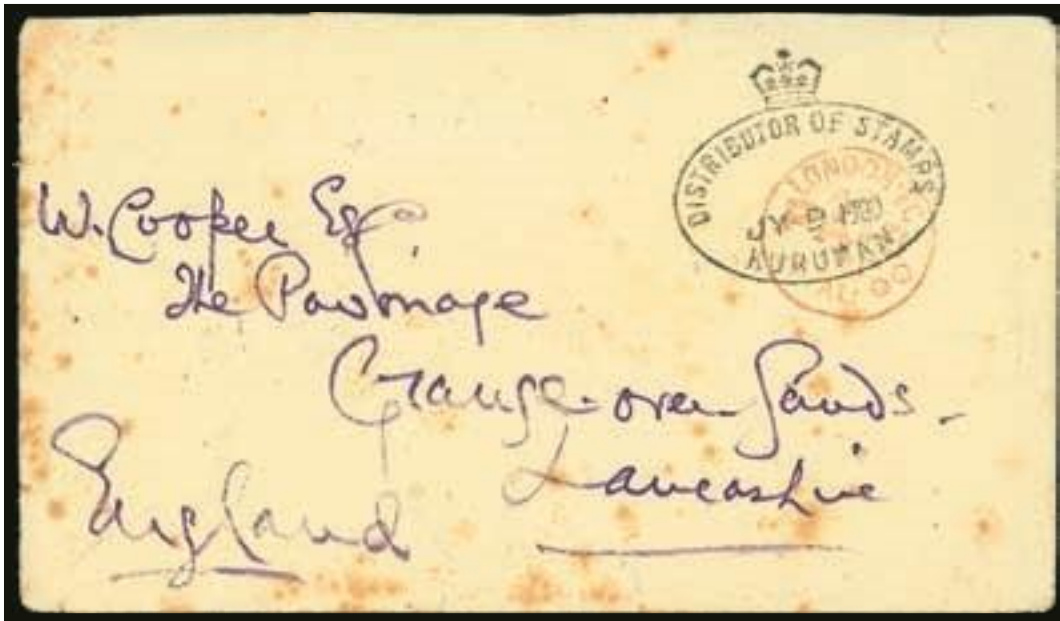 DISTRIBUTOR OF STAMPS
JY 9 1900
KURUMAN
LONDON
W. Cooper Esq.
The Parsonage
Grange-over-Sands.
Lancashire
England